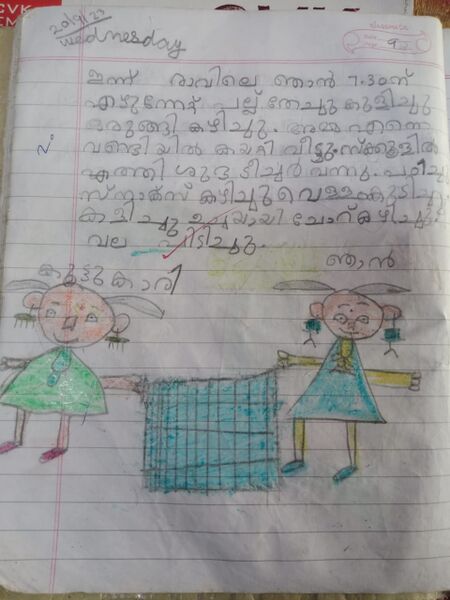 20/9/23
Wednesday
classmate
Date
Page 92
ഇന്ന് രാവിലെ ഞാൻ 7.30ന്
എഴുന്നേറ്റ് പല്ല് തേച്ചു കുളിച്ചു
ഒരുങ്ങി കഴിച്ചു. അമ്മ എന്നെ
വണ്ടിയിൽ കയറ്റി വിട്ടു. സ്ക്കൂളിൽ
എത്തി ടീച്ചർ വന്നു. പഠിച്ചു
സ്നാക്സ് കഴിച്ചു വെള്ളം കുടിച്ചു
കളിച്ചു ഉച്ചയായി ചോറ് കഴിച്ചു.
വല പിടിച്ചു.
ഞാൻ
കൂട്ടുകാരി